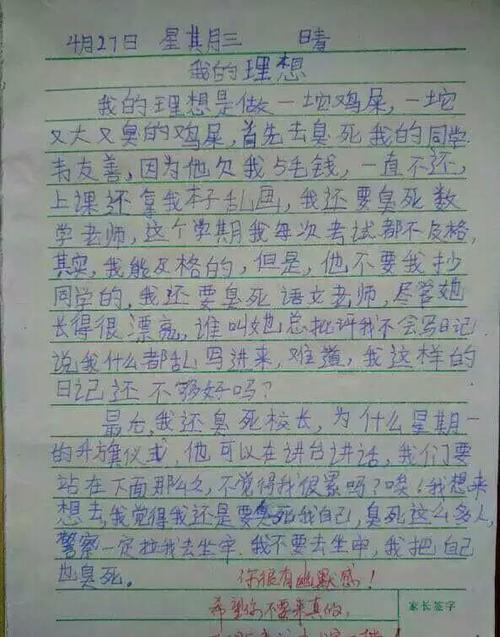 4月27日 星其月三 晴
我的理想
我的理想是做一坨鸡屎,一坨
又大又臭的鸡屎,首先去臭死我的同学
韦友善,因为他欠我5毛钱,一直不还,
上课还拿我本子乱画,我还要臭死数
学老师,这个学期我每次考试都不及格,
其实,我能及格的,但是,他不要我抄
同学的,我还要臭死语文老师,尽管她
长得很漂亮,谁叫她总批评我不会写日记
说我什么都乱写进来,难道,我这样的
日记还不够好吗?
最后,我还臭死校长,为什么星期一
的升旗仪式,他可以在讲台讲话,我们要
站在下面那么久,不觉得我很累吗?唉!我想来
想去,我觉得我还是要臭死我自己,臭死这么多人,
警察一定拉我去坐牢.我不要去坐牢,我把自己
也臭死。
你很有幽默感!
希望你不要来真的,
家长签字